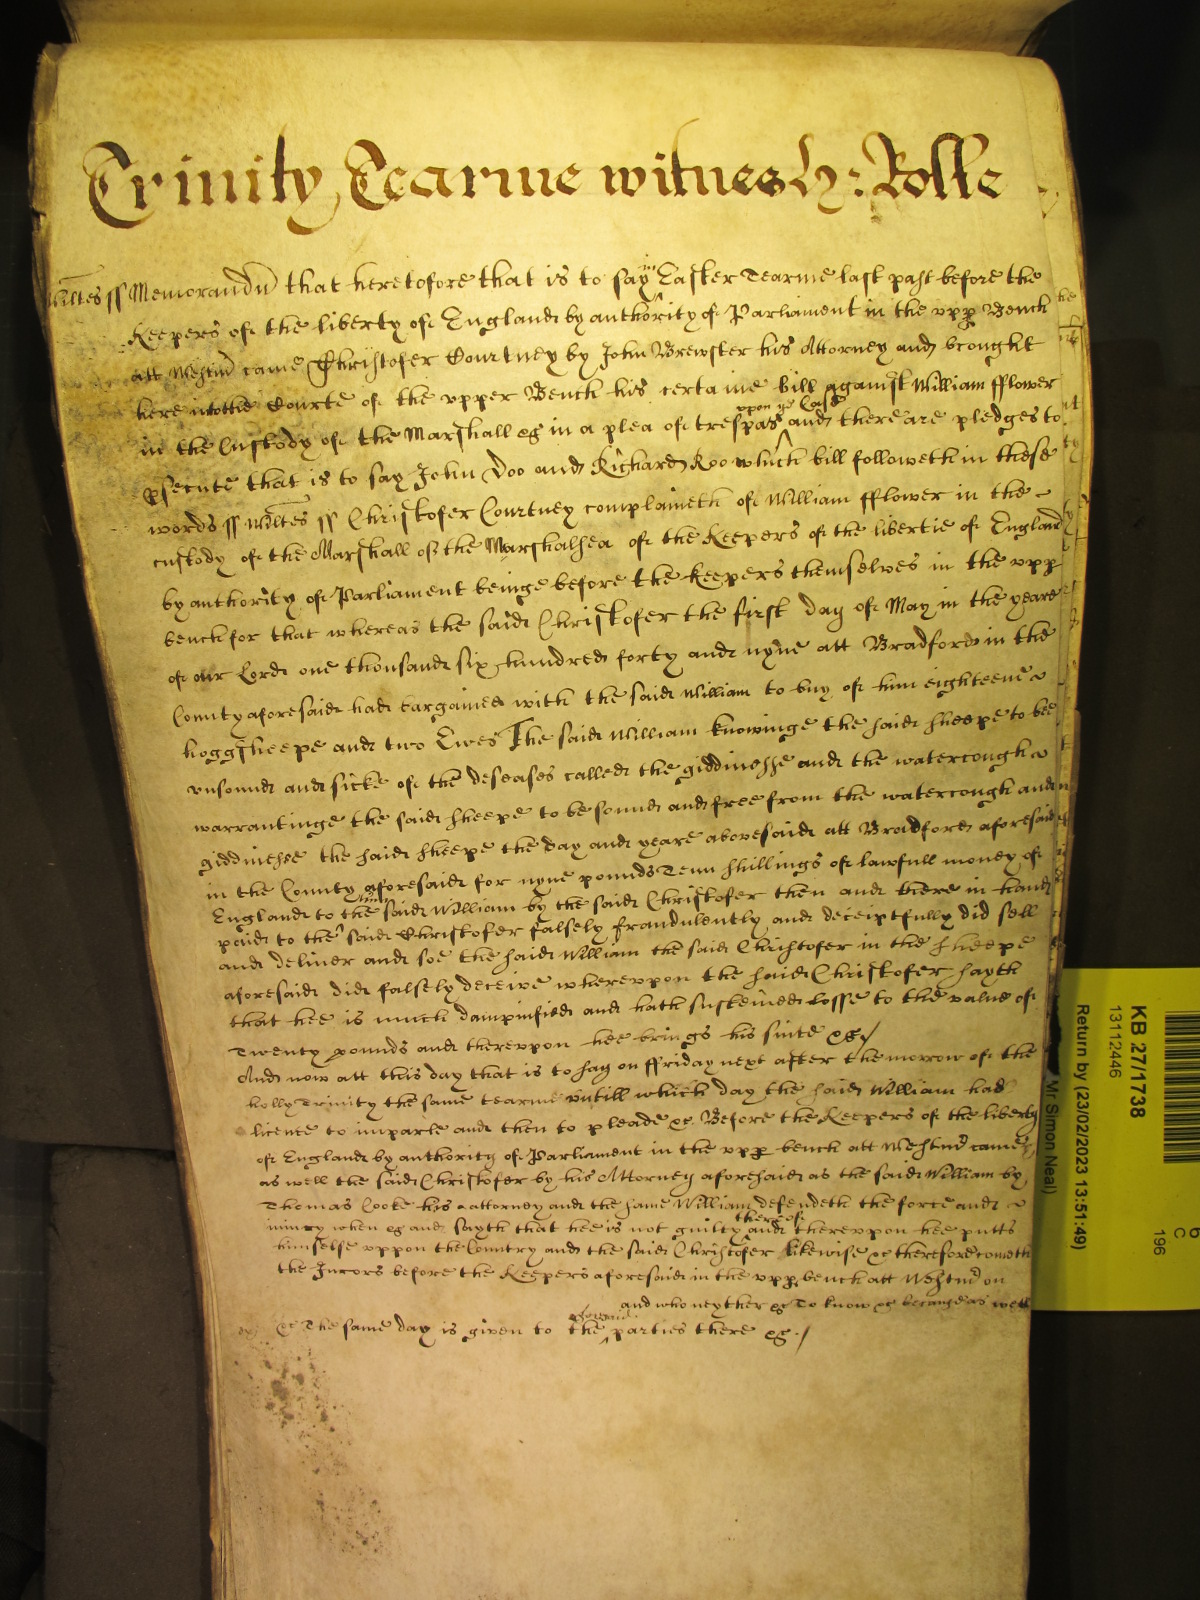 Trinity Tearme witnes H: Rolle
Wiltes ss Memorandu that heretofore that is to say in Easter Tearme last past before the
Keepers of the liberty of England by authority of Parliament in the upp Bench
att Westm came Christofer Courtney by John Brewster his Attorney and brought
here into the Courte of the upper Bench his certaine bill against William fflower
in the Custody of the Marshall &c in a plea of trespas upon ye Case and there are pledges to
psecute that is to say John Doo and Richard Roo which bill followeth in these
words ss Wiltes ss Christofer Courtney complaineth of William fflower in the
custody of the Marshall of the Marshalsea of the Keepers of the libertie of England
by authority of Parliament beinge before the Keepers themselves in the upp
bench for that whereas the said Christofer the first day of May in the yeare
of our Lord one thousand six hundred forty and nyne att Bradford in the
County aforesaid had bargained with the said William to buy of him eighteene
hoggsheepe and two Ewes The said William knowinge the said sheepe to bee
unsound and sicke of the deseases called the giddinesse and the watercough
warrantinge the said sheepe to be sound and free from the watercough and
giddinesse the said sheepe the day and yeare abovesaid att Bradford aforesaid
in the County aforesaid for nyne pounds Tenn shillings of lawfull money of
England to the said William by the said Christofer then and there in hand
paid to the said Christofer falsely fraudulently and deceiptfully did sell
and deliver and soe the said William the said Christofer in the sheepe
aforesaid did falsely deceive whereupon the said Christofer sayth
that hee is much dampnified and hath susteined losse to the value of
Twenty pounds and thereupon hee brings his suite &c /
And now att this day that is to say on ffriday next after the morrow of the
holly Trinity the same tearme untill which day the said William had
licence to imparle and then to pleade &c Before the Keepers of the liberty
of England by authority of Parliament in the upp bench att Westm came
as well the said Christofer by his Attorney aforesaid as the said William by
Thomas Cooke his attorney and the same William defendeth the force and
iniury when &c and sayth that hee is not guilty thereof and thereupon hee putts
himselfe uppon the Country and the said Christofer likewise &c therefore cometh
the Jurors before the Keepers aforesaid in the upp bench att Westm on
and who neyther &c To know &c because as well
&c The same day is given to the parties there &c /
KB 27/1738
13112446
Return by (23/02/2023 13:51:49)
Mr Simon Neal)
C
196